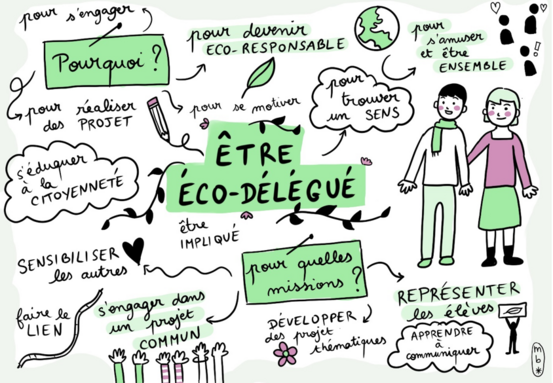 pour s'engager
Pourquoi ?
pour devenir
ECO-RESPONSABLE
pour
s'amuser
et être
ENSEMBLE
pour réaliser
des PROJET
pour se motiver
pour
trouver
un SENS
s'éduquer
à la
CITOYENNETÉ
ÊTRE
ÉCO-DÉLÉGUÉ
être
IMPLIQUÉ
SENSIBILISER
les autres
pour quelles
missions ?
faire le
LIEN
s'engager dans
un projet
COMMUN
DÉVELOPPER
des projet
thématiques
REPRÉSENTER
les élèves
APPRENDRE
à
communiquer
mb*